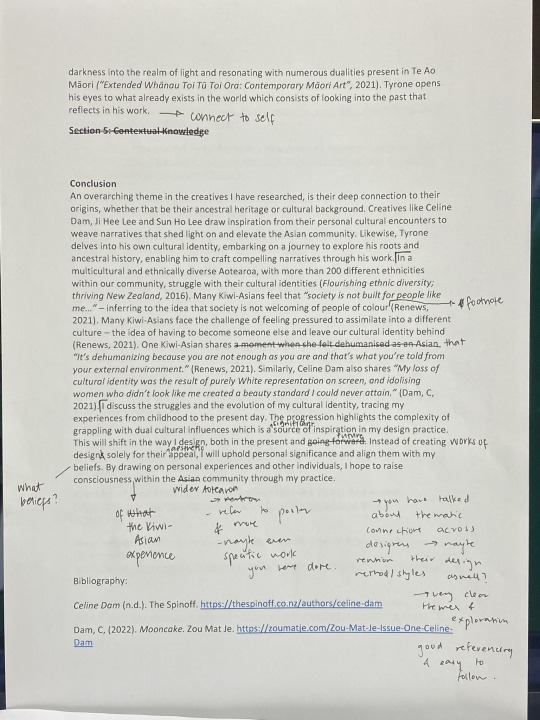 darkness into the realm of light and resonating with numerous dualities present in Te Ao
Māori ("Extended Whānau Toi Tū Toi Ora: Contemporary Māori Art", 2021). Tyrone opens
his eyes to what already exists in the world which consists of looking into the past that
reflects in his work. → connect to self
Section 5: Contextual Knowledge
Conclusion
An overarching theme in the creatives I have researched, is their deep connection to their
origins, whether that be their ancestral heritage or cultural background. Creatives like Celine
Dam, Ji Hee Lee and Sun Ho Lee draw inspiration from their personal cultural encounters to
weave narratives that shed light on and elevate the Asian community. Likewise, Tyrone
delves into his own cultural identity, embarking on a journey to explore his roots and
ancestral history, enabling him to craft compelling narratives through his work. In a
multicultural and ethnically diverse Aotearoa, with more than 200 different ethnicities
within our community, struggle with their cultural identities (Flourishing ethnic diversity;
thriving New Zealand, 2016). Many Kiwi-Asians feel that "society is not built for people like
me..." – inferring to the idea that society is not welcoming of people of colour (Renews, → footnote
2021). Many Kiwi-Asians face the challenge of feeling pressured to assimilate into a different
culture – the idea of having to become someone else and leave our cultural identity behind
(Renews, 2021). One Kiwi-Asian shares a moment when she felt dehumanised as an Asian, that
"It's dehumanizing because you are not enough as you are and that's what you're told from
your external environment." (Renews, 2021). Similarly, Celine Dam also shares "My loss of
cultural identity was the result of purely White representation on screen, and idolising
women who didn't look like me created a beauty standard I could never attain." (Dam, C,
2021). I discuss the struggles and the evolution of my cultural identity, tracing my
experiences from childhood to the present day. The progression highlights the complexity of
grappling with dual cultural influences which is a significant source of inspiration in my design practice.
This will shift in the way I design, both in the present and going forward. future Instead of creating works of
designs solely for their aesthetic appeal, I will uphold personal significance and align them with my
beliefs. By drawing on personal experiences and other individuals, I hope to raise
consciousness within the Asian community through my practice.
wider Aotearoa
what
beliefs?
of what
the Kiwi-
Asian
experience
→ mention
- refer to poster
& more
- maybe even
specific work
you have done.
→ you have talked
about thematic
connections across
designers → maybe
mention their design
method/styles
aswell?
→ very clear
themes &
exploration
good referencing
& easy to
follow.
Bibliography:
Celine Dam (n.d.). The Spinoff. https://thespinoff.co.nz/authors/celine-dam
Dam, C, (2022). Mooncake. Zou Mat Je. https://zoumatje.com/Zou-Mat-Je-Issue-One-Celine-
Dam